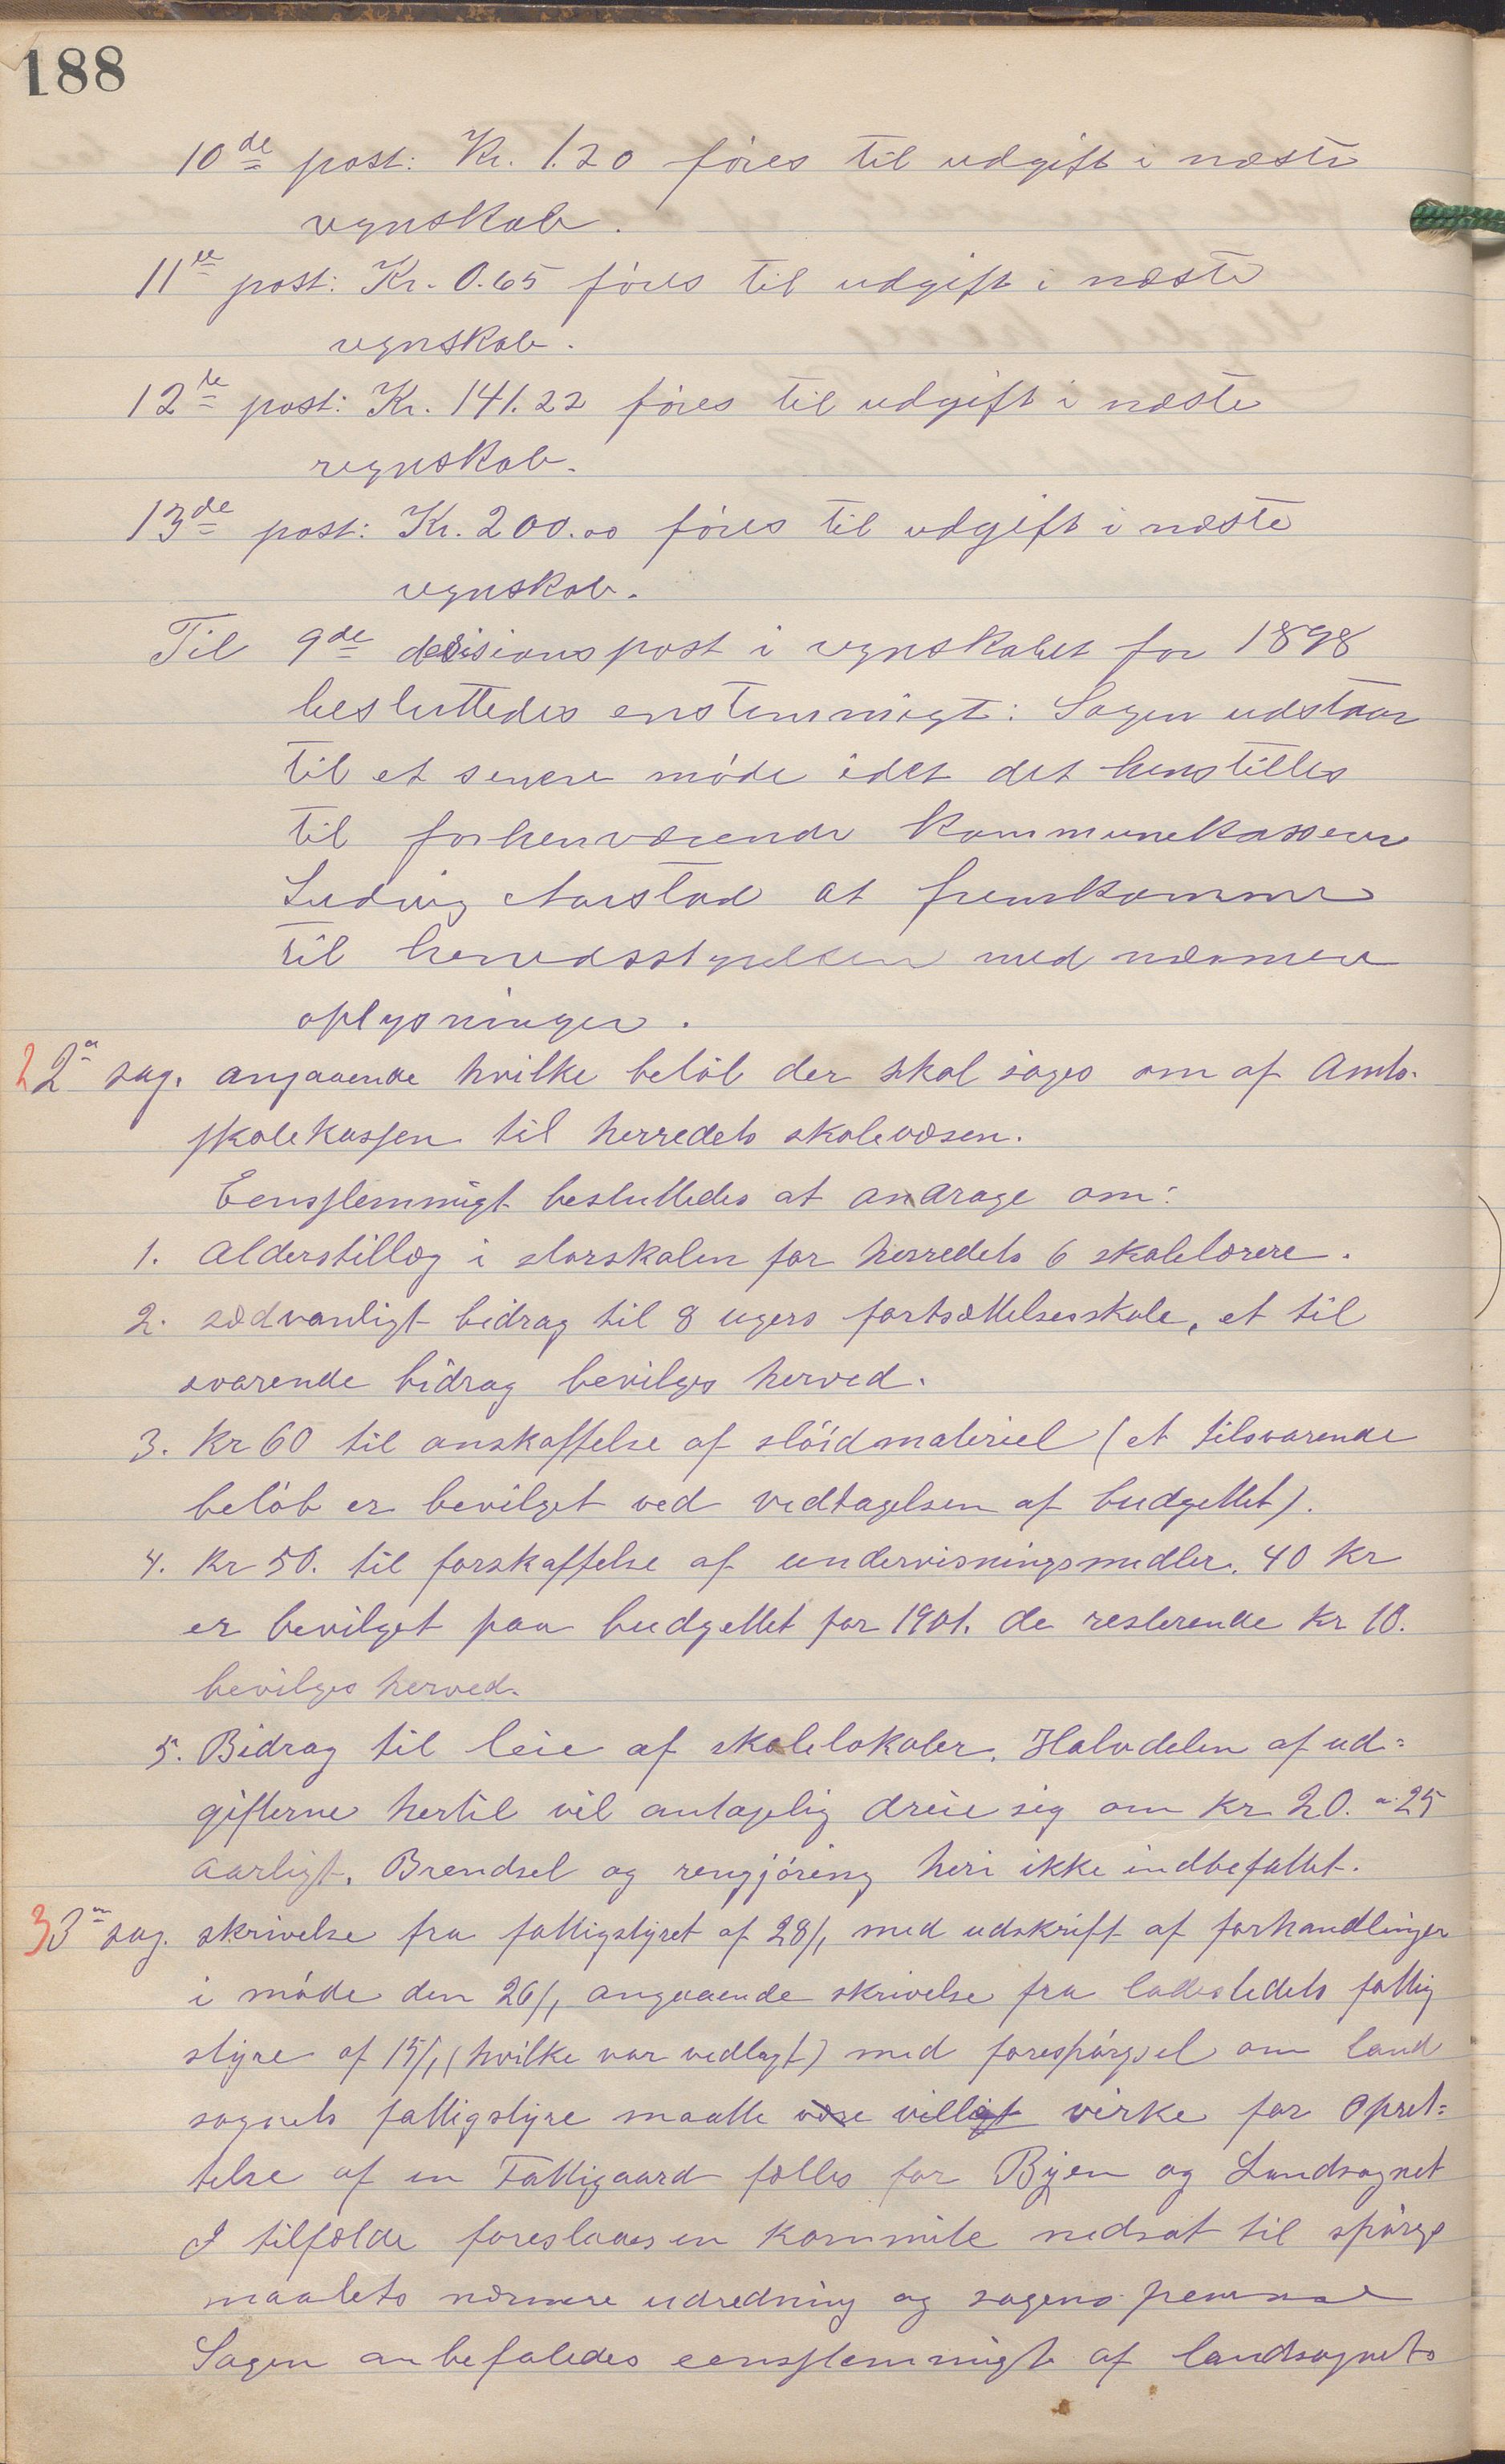 188
10de post: Kr. 1.20 föres til udgift i næste
regnskab.
11te post: Kr. 0.65 föres til udgift i næste
regnskab.
12te post: Kr. 141.22 föres til udgift i næste
regnskab.
13de post: Kr. 200.00 föres til udgift i næste
regnskab.
Til 9de desisions post i regnskabet for 1898
besluttedes enstemmigt: Sagen udstaar
til et senere möde idet det henstilles
til forhenværende kommunekasserer
Ludvig Aarstad at fremkomme
til herredsstyrelsen med nærmere
oplysninger.
2 2en sag. angaaende hvilke belöb der skal söges om af Amts-
skolekassen til herredets skolevæsen.
Eenstemmigt besluttedes at andrage om:
1. Alderstillæg i storskolen for herredets 6 skolelærere.
2. sædvanligt bidrag til 8 ugers fortsættelsesskole, et til
svarende bidrag bevilges herved.
3. Kr 60 til anskaffelse af slöidmateriel (et tilsvarende
belöb er bevilget ved vedtagelsen af budgettet).
4. Kr 50. til forskaffelse af undervisningsmidler. 40 Kr
er bevilget paa budgettet for 1901. de resterende Kr 10.
bevilges herved.
5. Bidrag til leie af skolelokaler. Halvdelen af ud=
gifterne hertil vil antagelig dreie sig om Kr 20. a 25
aarligt. Brendsel og rengjöring heri ikke indbefattet.
3 3en sag. skrivelse fra fattigstyret af 28/1 med udskrift af forhandlinger
i möde den 26/1 angaaende skrivelse fra ladestedets fattig
styre af 15/1 (hvilke var vedlagt) med forespörgsel om land
sognets fattigstyre maatte være villigt virke for Opret=
telse af en Fattigaard fælles for Byen og Landsognet
I tilfælde foreslaaes en kommite nedsat til spörgs
maalets nærmere udredning og sagens fremme
Sagen anbefaledes eenstemmigt af landsognets